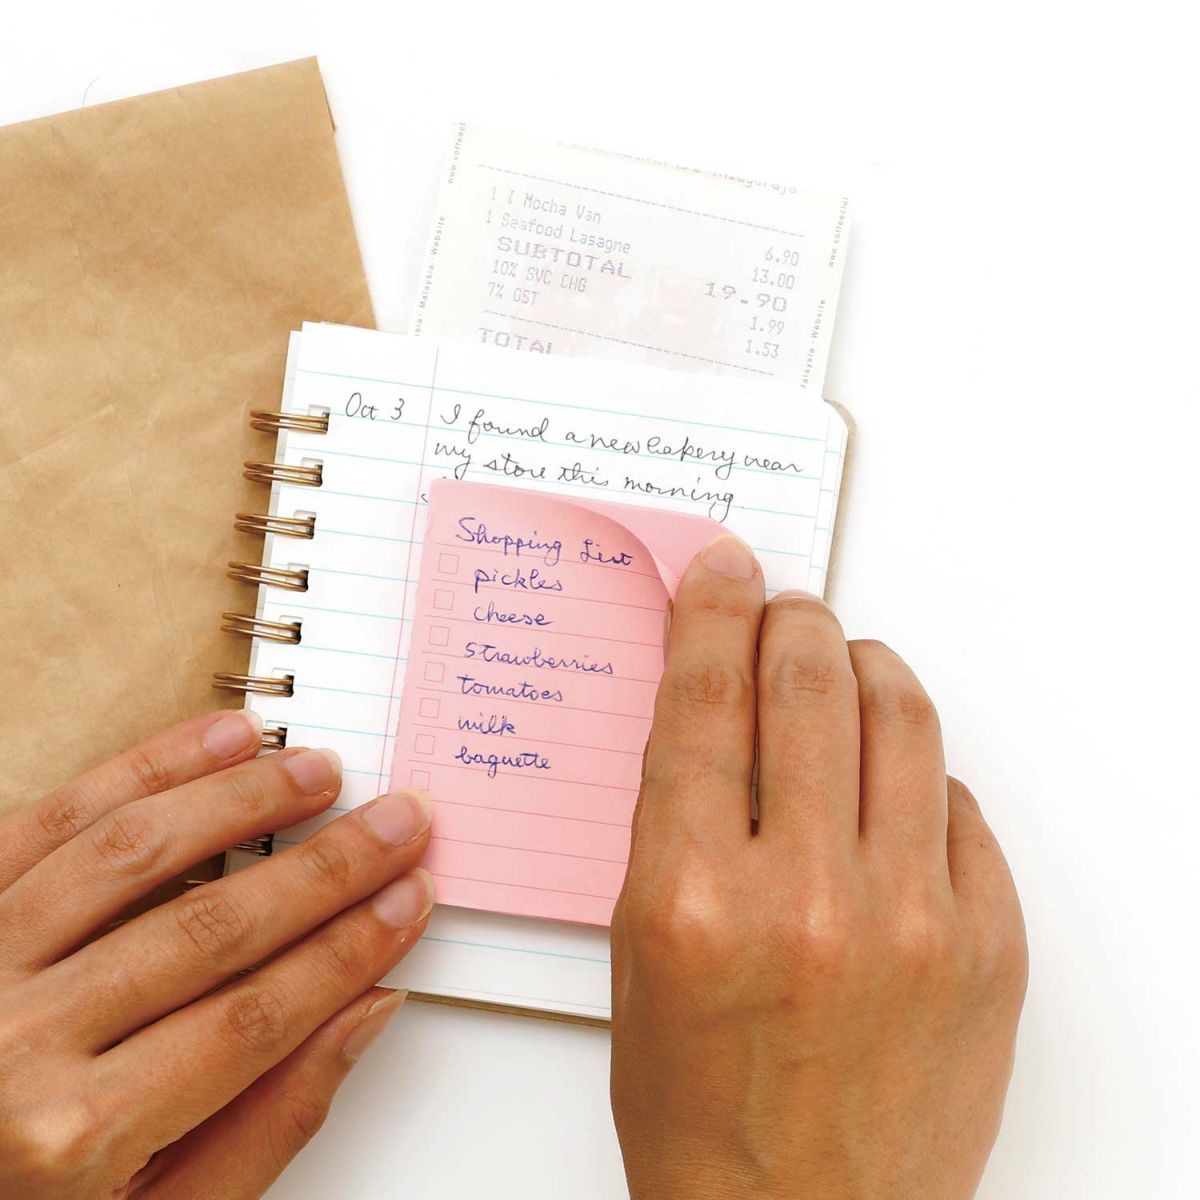 www.coffeeclu
1 I Mocha Van 6.90
1 Seafood Lasagne 13.00
SUBTOTAL 19.90
10% SVC CHG 1.99
7% GST 1.53
TOTAL
Malaysia · Website
www.coffeeclu
Malaysia · Website
Oct 3 I found a new bakery near
my store this morning.
Shopping List
pickles
cheese
strawberries
tomatoes
milk
baguette